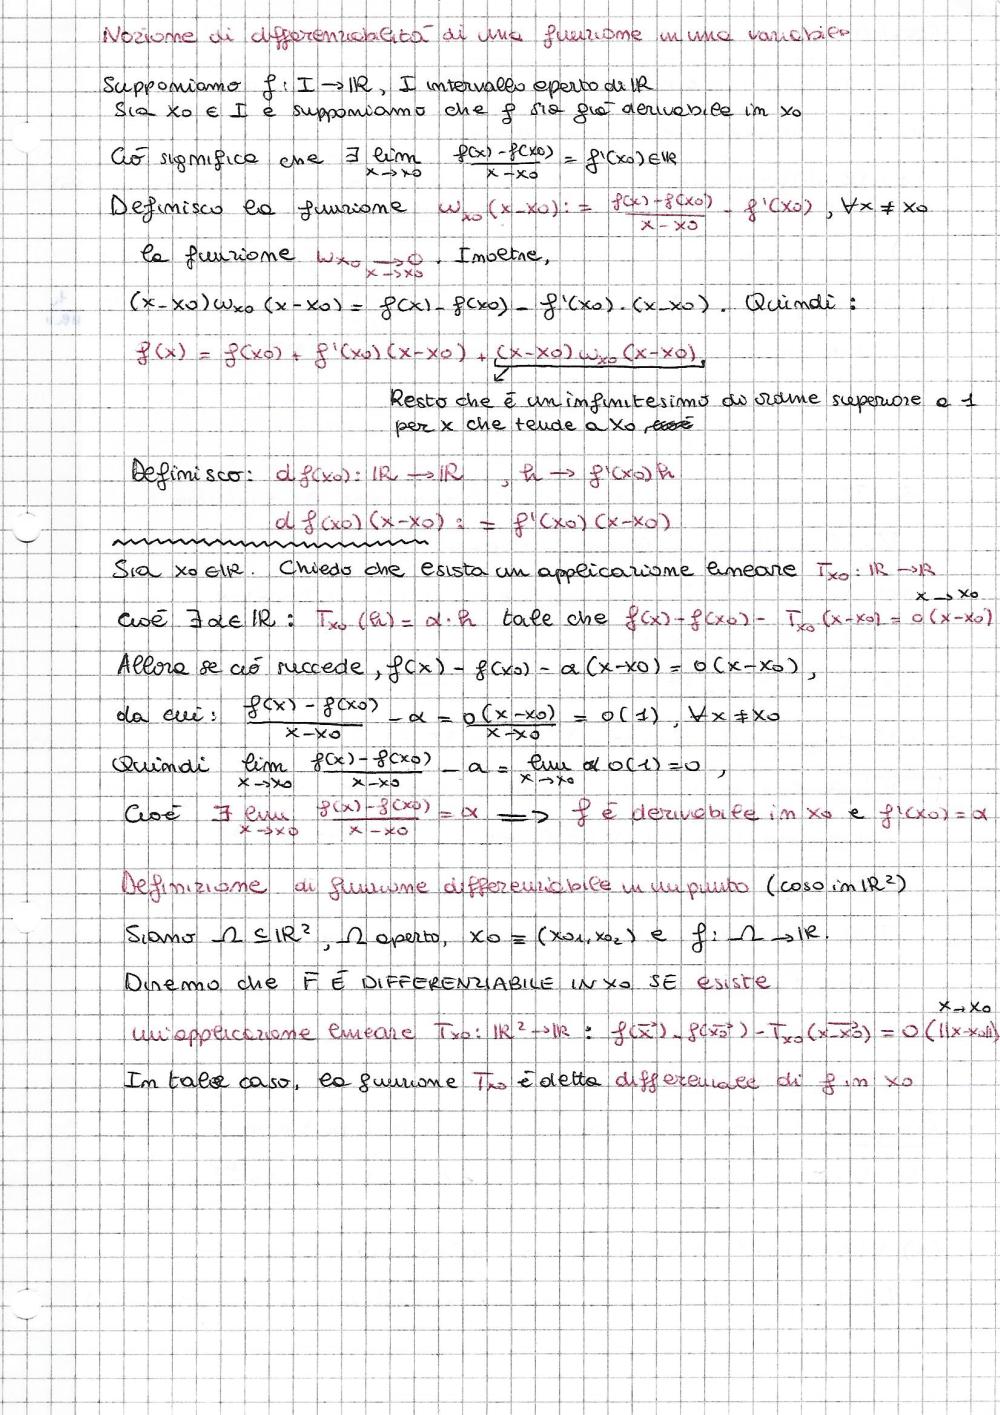 Nozione di differenziabilità di una funzione in una variabile
Supponiamo f: I → ℝ, I intervallo aperto di ℝ
Sia x0 ∈ I e supponiamo che f sia già derivabile in x0
Ciò significa che ∃ lim x→x0 (f(x)-f(x0))/(x-x0) = f'(x0) ∈ ℝ
Definisco la funzione ω_x0 (x-x0) := (f(x)-f(x0))/(x-x0) - f'(x0), ∀x ≠ x0
la funzione ω_x0 → 0 x→x0. Inoltre,
(x-x0) ω_x0 (x-x0) = f(x) - f(x0) - f'(x0)·(x-x0). Quindi:
f(x) = f(x0) + f'(x0)(x-x0) + (x-x0) ω_x0 (x-x0),
Resto che è un infinitesimo di ordine superiore a 1
per x che tende a x0
Definisco: d f(x0): ℝ → ℝ, h → f'(x0)h
d f(x0)(x-x0) := f'(x0)(x-x0)
Sia x0 ∈ ℝ. Chiedo che esista un applicazione lineare T_x0: ℝ → ℝ
x→x0
cioè ∃α∈ℝ: T_x0(h) = α·h tale che f(x)-f(x0) - T_x0(x-x0) = o(x-x0)
Allora se ciò succede, f(x) - f(x0) - α(x-x0) = o(x-x0),
da cui: (f(x)-f(x0))/(x-x0) - α = o(x-x0)/(x-x0) = o(1), ∀x≠x0
Quindi lim x→x0 (f(x)-f(x0))/(x-x0) - α = lim x→x0 o(1) = 0,
Cioè ∃ lim x→x0 (f(x)-f(x0))/(x-x0) = α ⟹ f è derivabile in x0 e f'(x0) = α
Definizione di funzione differenziabile in un punto (caso in ℝ²)
Siano Ω ⊆ ℝ², Ω aperto, x0 = (x01, x02) e f: Ω → ℝ.
Diremo che F È DIFFERENZIABILE IN x0 SE esiste
x→x0
un'applicazione lineare T_x0: ℝ² → ℝ : f(x⃗) - f(x⃗0) - T_x0(x⃗-x⃗0) = o(||x-x0||)
In tale caso, la funzione T_x0 è detta differenziale di f in x0